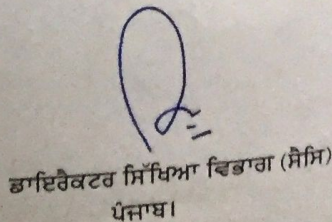 ਡਾਇਰੈਕਟਰ ਸਿੱਖਿਆ ਵਿਭਾਗ (ਸੈਸਿ)
ਪੰਜਾਬ।